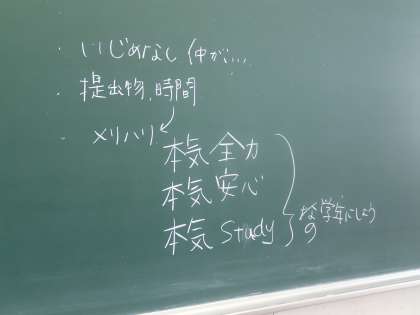 ・いじめなし 仲が...
・提出物、時間
・メリハリ
本気 全力
本気 安心
本気 Study
な学年にしよう
の